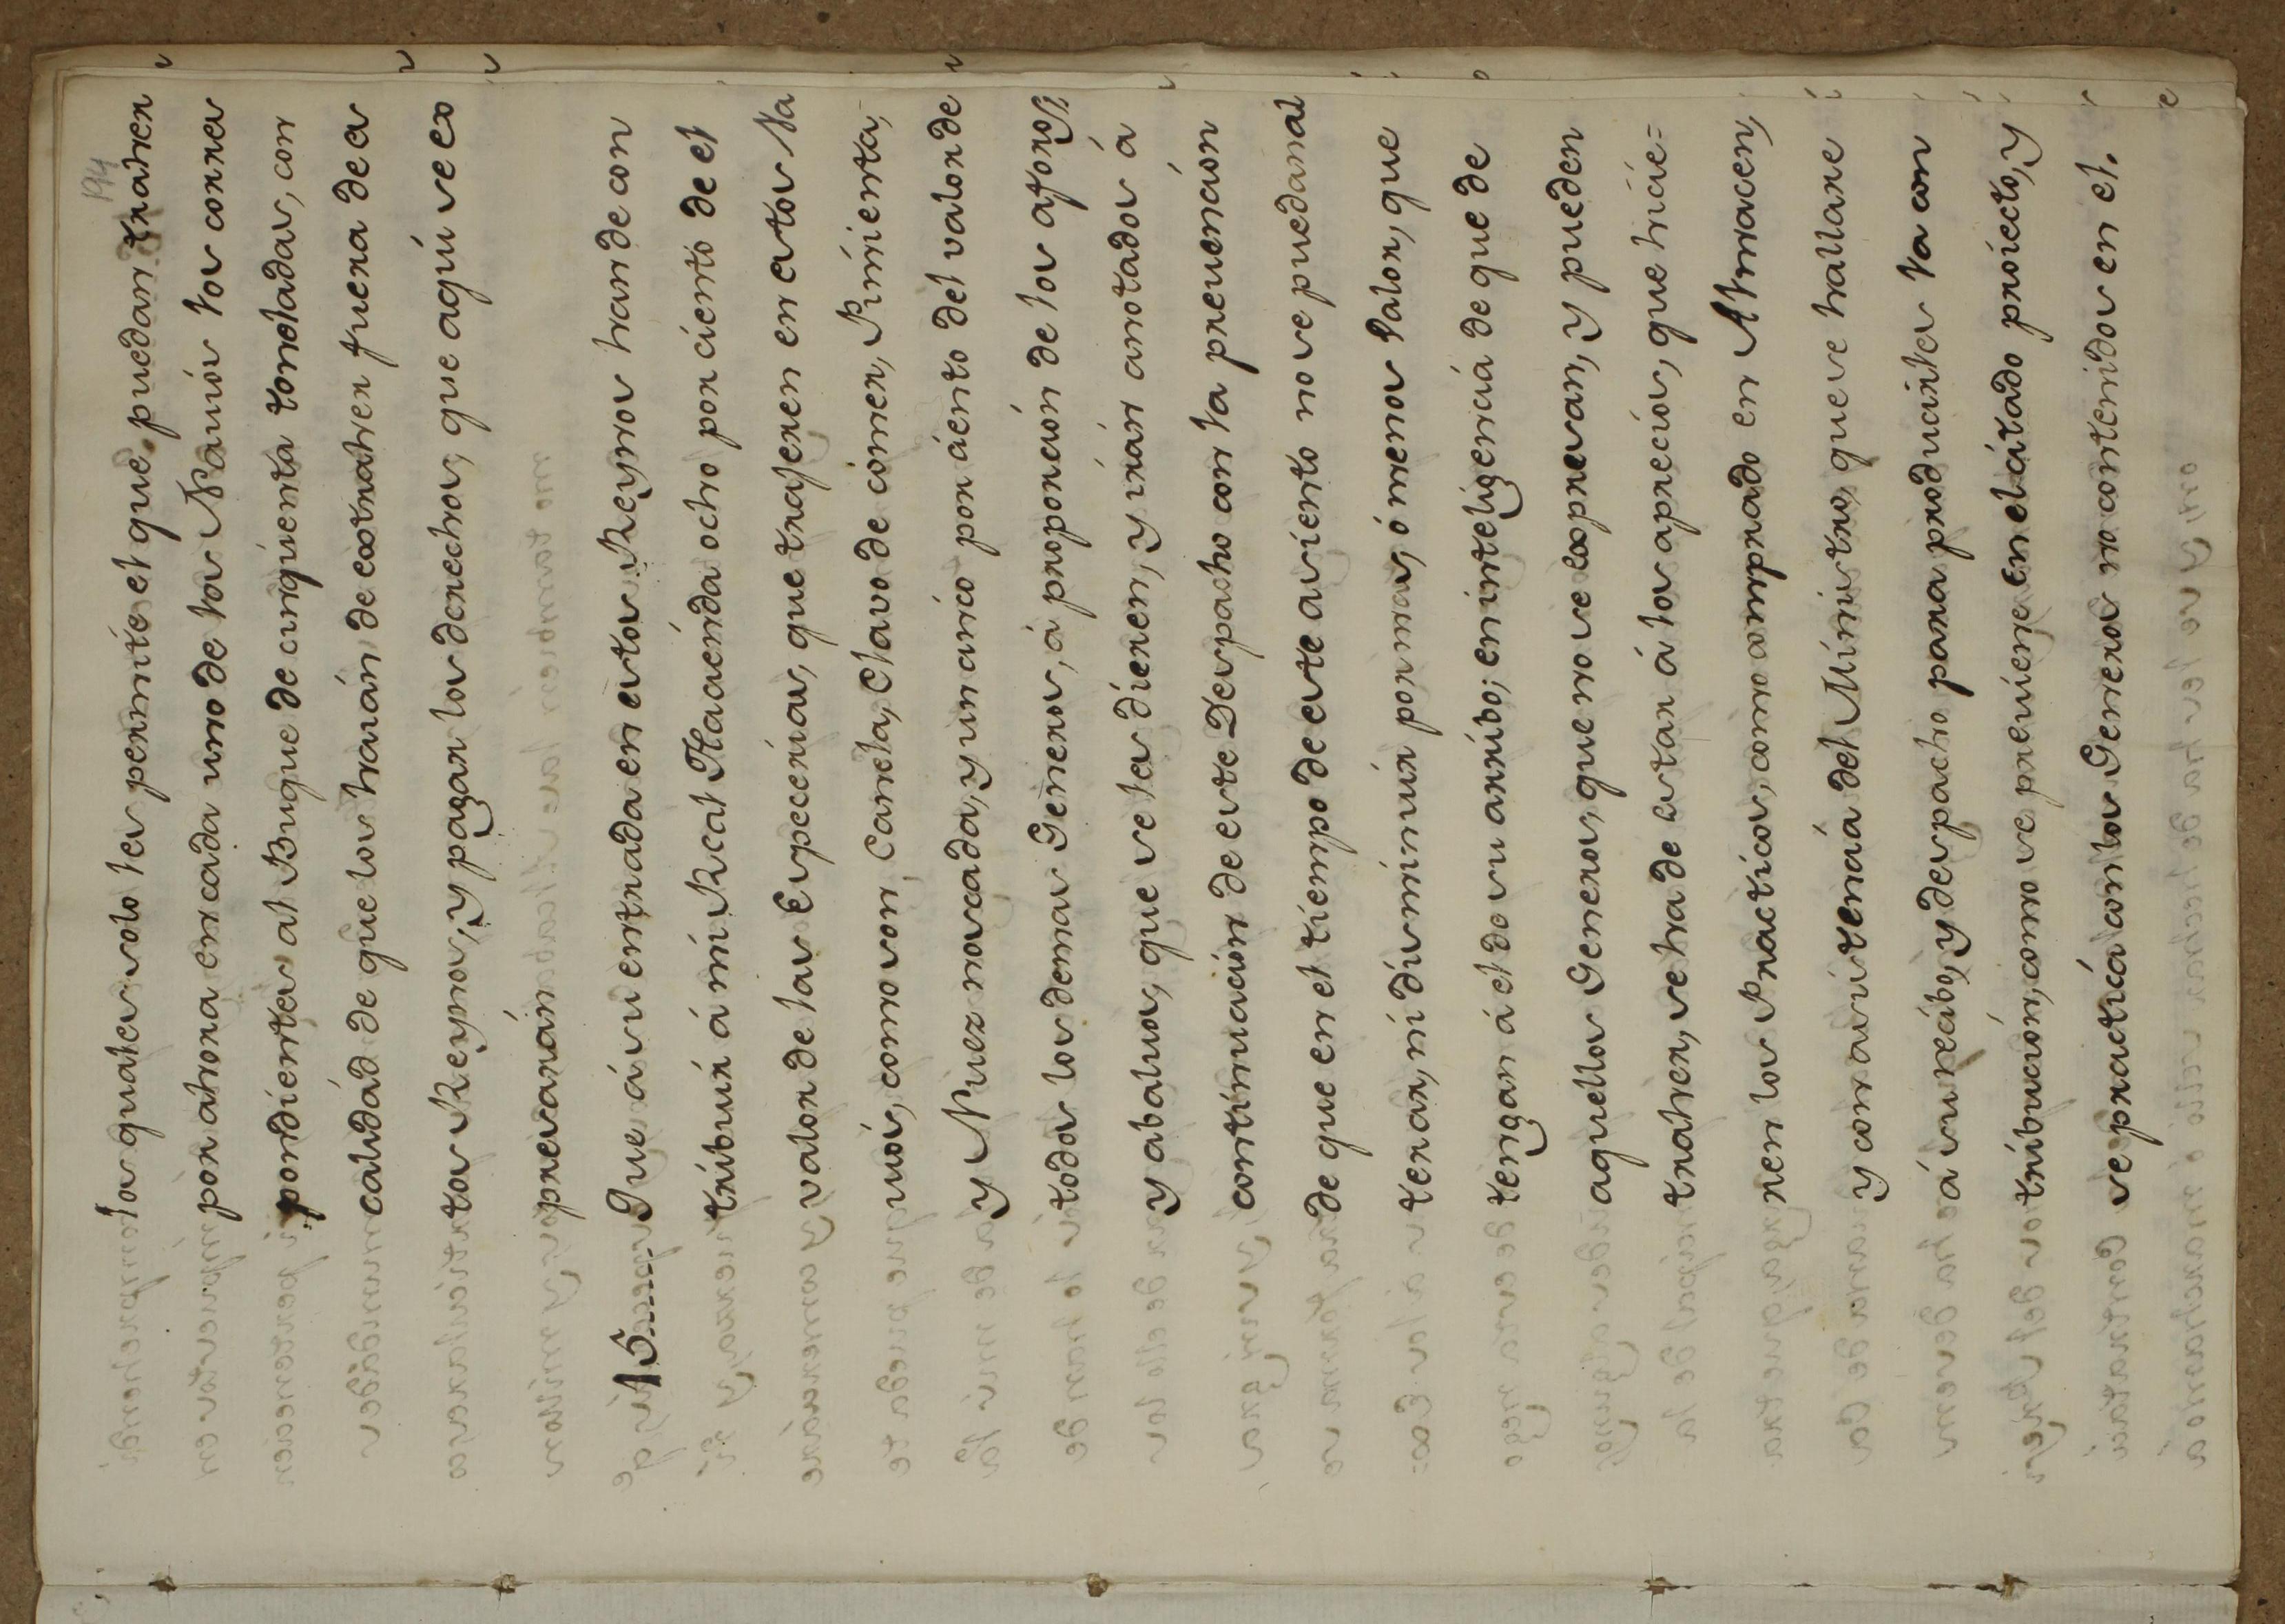 194
las quales solo les permite el que puedan traher
por ahora en cada uno de los Navios los corres
pondientes al Buque de cinquenta toneladas, con
calidád de que los harán de extraher fuera de es
tos Reynos, y pagar los derechos, que aqui se ex
presarán
15 Que á su entrada en estos Reynos han de con
tribuir á mi Real Hacienda ocho por ciento de el
valor de las Especerias, que trajeren en estos Na
vios, como son, Canela, Clavo de comer, Pimienta,
y Nuez noscada, y un cinco por ciento del valor de
todos los demas Generos, á proporcion de los aforos,
y abaluos, que se les dieren, y irán anotados á
continuacion de este Despacho con la prevencion
de que en el tiempo de este asiento no se puedan al
terar, ni disminuir por mas, ó menos Valor, que
tengan á el de su arribo; en inteligencia de que de
aquellos Generos, que no se expresan, y pueden
traher, se ha de estar á los aprecios, que hicie=
ren los Practicos, como comprado en Almacen,
y con asistencia del Ministro, que se hallare
á su recibo, y despacho para producirles la con
tribucion, como se previene en el citado proiecto, y
se practíca con los Generos no contenidos en el.